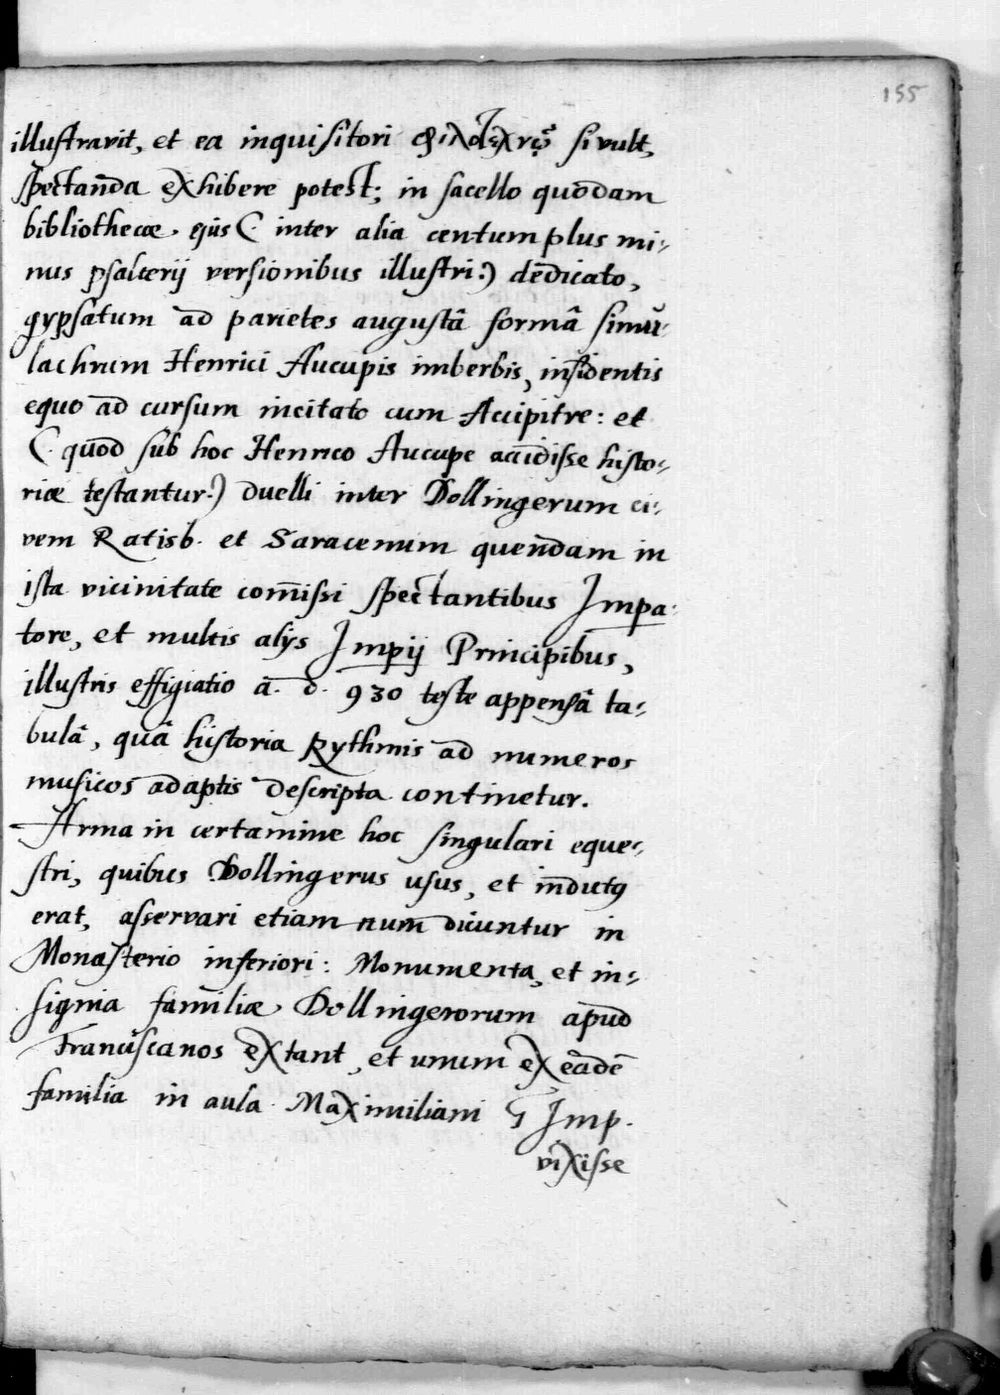 155
illustravit, et ea inquisitori si vult,
spectanda exhibere potest; in sacello quodam
bibliothecæ ejus (. inter alia centum plus mi-
nus psalterij versionibus illustri.) dedicato,
gypsatum ad parietes augustâ formâ simu-
lachrum Henrici Aucupis imberbis, insidentis
equo ad cursum incitato cum Accipitre: et
(. quod sub hoc Henrico Aucupe accidisse histo-
riæ testantur.) duelli inter Dollingerum ci-
vem Ratisb. et Saracenum quendam in
ista vicinitate com̄issi spectantibus Impa-
tore, et multis alijs Impij Principibus,
illustris effigiatio â. d. 930 teste appensâ ta-
bulâ, quâ historia Rythmis ad numeros
musicos adaptis descripta continetur.
Arma in certamine hoc singulari eque-
stri, quibus Dollingerus usus, et indutꝰ
erat, asservari etiam num dicuntur in
Monasterio inferiori: Monumenta, et in-
signia familiæ Dollingerorum apud
Franciscanos extant, et unum ex eâdē
familia in aula Maximiliani Imp.
vixisse